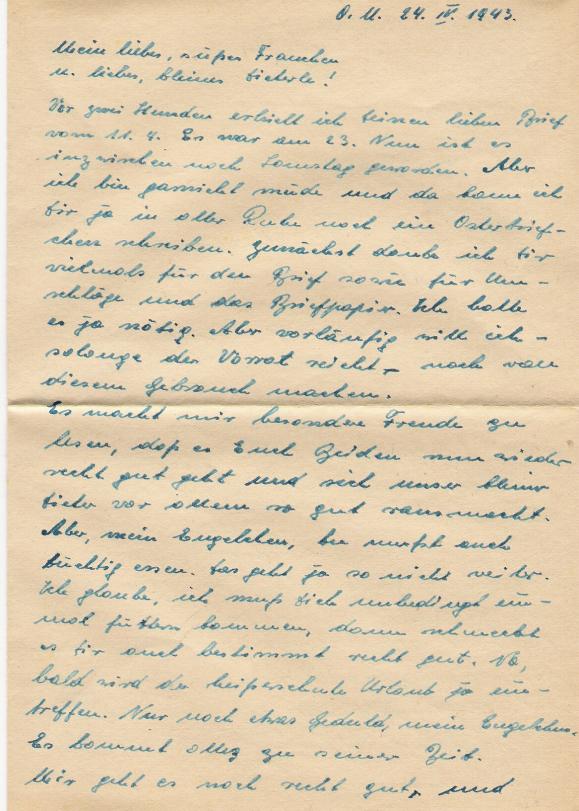 O. U. 24. IV. 1943.
Mein liebes, süßes Frauchen
u. liebes, kleines Dieterle!
Vor zwei Stunden erhielt ich Deinen lieben Brief
vom 11. 4. Es war am 23. Nun ist es
inzwischen noch Samstag geworden. Aber
ich bin garnicht müde und da kann ich
Dir ja in aller Ruhe noch ein Osterbrief-
chen schreiben. Zunächst danke ich Dir
vielmals für den Brief sowie für Um-
schläge und das Briefpapier. Ich hatte
es ja nötig. Aber vorläufig will ich -
solange der Vorrat reicht, - noch von
diesem Gebrauch machen.
Es macht mir besondere Freude zu
lesen, daß es Euch Beiden nun wieder
recht gut geht und sich unser kleiner
Dieter vor allem so gut rausmacht.
Aber, mein Engelchen, Du mußt auch
tüchtig essen. Das geht ja so nicht weiter.
Ich glaube, ich muß Dich unbedingt ein-
mal füttern kommen, dann schmeckt
es Dir auch bestimmt recht gut. Na,
bald wird der heißersehnte Urlaub ja ein-
treffen. Nur noch etwas Geduld, mein Engelchen.
Es kommt alles zu seiner Zeit.
Mir geht es noch recht gut, und